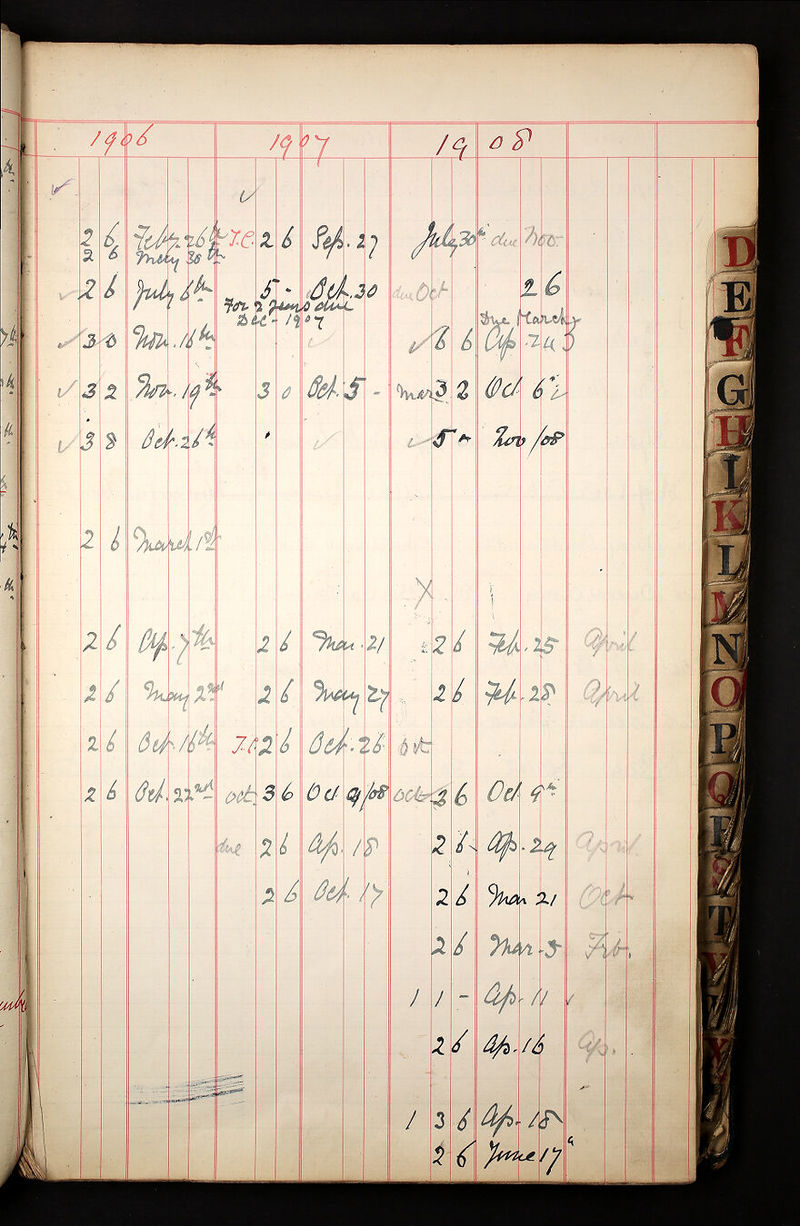 1906 1907 1908
2 6 Feby. 26th J.C. 2 6 Sep. 27 July 30th due Nov.
2 6 May 30th
2 6 July 6th 5 - Oct. 30 due Oct 2 6
For 2 years due
Dec - 1907 Due March
3 0 Nov. 16th 6 6 Ap. 24
3 2 Nov. 19th 3 0 Oct. 5 - Mar 3 2 Oct 6
3 8 Oct. 26th 5 - Nov/08
2 6 March 1st
X
2 6 Ap. 7th 2 6 Mar. 21 2 6 Feb. 25 April
2 6 May 2nd 2 6 May 27 2 6 Feb. 28 April
2 6 Oct. 16th J.C. 2 6 Oct. 26 Oct
2 6 Oct. 22nd Oct. 3 6 Oct 9/08 Oct 3 6 Oct 9th
due 2 6 Ap. 18 2 6 Ap. 29 April
2 6 Oct. 17 2 6 Mar 21 Oct
2 6 Mar. 5 Feb.
1 1 - Ap. 11
2 6 Ap. 16 Ap.
1 3 6 Ap. 18
2 6 June 17th
D
E
F
G
H
I
K
L
M
N
O
P
Q
R
S
T
V
X